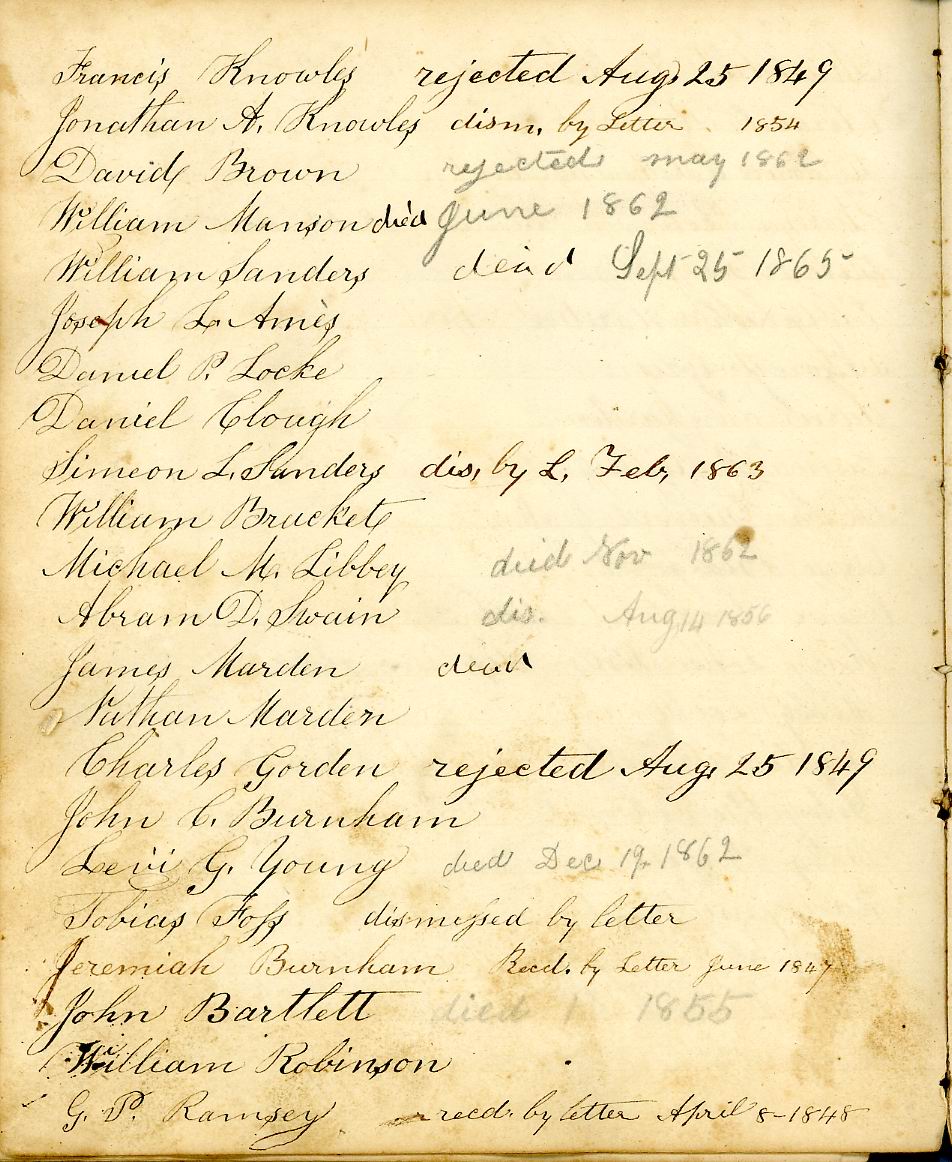 Francis Knowles rejected Aug 25 1849
Jonathan A. Knowles dism. by Letter 1854
David Brown rejected may 1862
William Manson died June 1862
William Sanders dead Sept 25 1865
Joseph L. Ames
Daniel P. Locke
Daniel Clough
Simeon L. Sanders dis, by L. Feb, 1863
William Bracket
Michael M. Libbey died Nov 1862
Abram D. Swain dis. Aug 14 1856
James Marden dead
Nathan Marden
Charles Gorden rejected Aug, 25 1849
John C. Burnham
Levi G. Young died Dec 19, 1862
Tobias Foss dismissed by letter
Jeremiah Burnham Recd. by Letter June 1847
John Bartlett died 1855
William Robinson
G. P. Ramsey recd. by letter April 8-1848